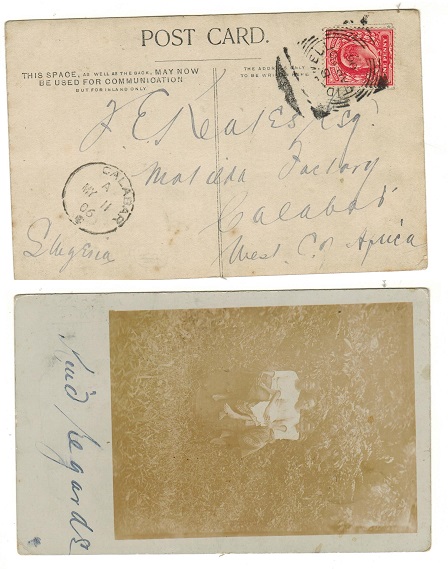 POST CARD.
THIS SPACE, AS WELL AS THE BACK, MAY NOW
BE USED FOR COMMUNICATION
BUT FOR INLAND ONLY
THE ADDRESS ONLY
TO BE WRITTEN HERE
ONE PENNY
J. E. Keates Esq.
Matilda Factory
Calabar
S. Nigeria
West C. of Africa
CALABAR
A
MY 11
06
Kind Regards